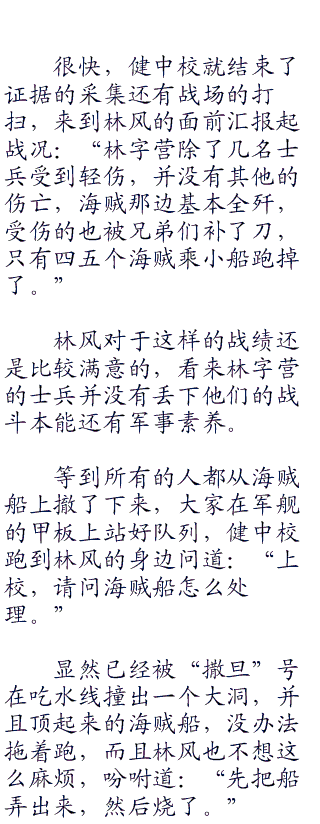 很快，健中校就结束了
证据的采集还有战场的打
扫，来到林风的面前汇报起
战况：“林字营除了几名士
兵受到轻伤，并没有其他的
伤亡，海贼那边基本全歼，
受伤的也被兄弟们补了刀，
只有四五个海贼乘小船跑掉
了。”
林风对于这样的战绩还
是比较满意的，看来林字营
的士兵并没有丢下他们的战
斗本能还有军事素养。
等到所有的人都从海贼
船上撤了下来，大家在军舰
的甲板上站好队列，健中校
跑到林风的身边问道：“上
校，请问海贼船怎么处
理。”
显然已经被“撒旦”号
在吃水线撞出一个大洞，并
且顶起来的海贼船，没办法
拖着跑，而且林风也不想这
么麻烦，吩咐道：“先把船
弄出来，然后烧了。”